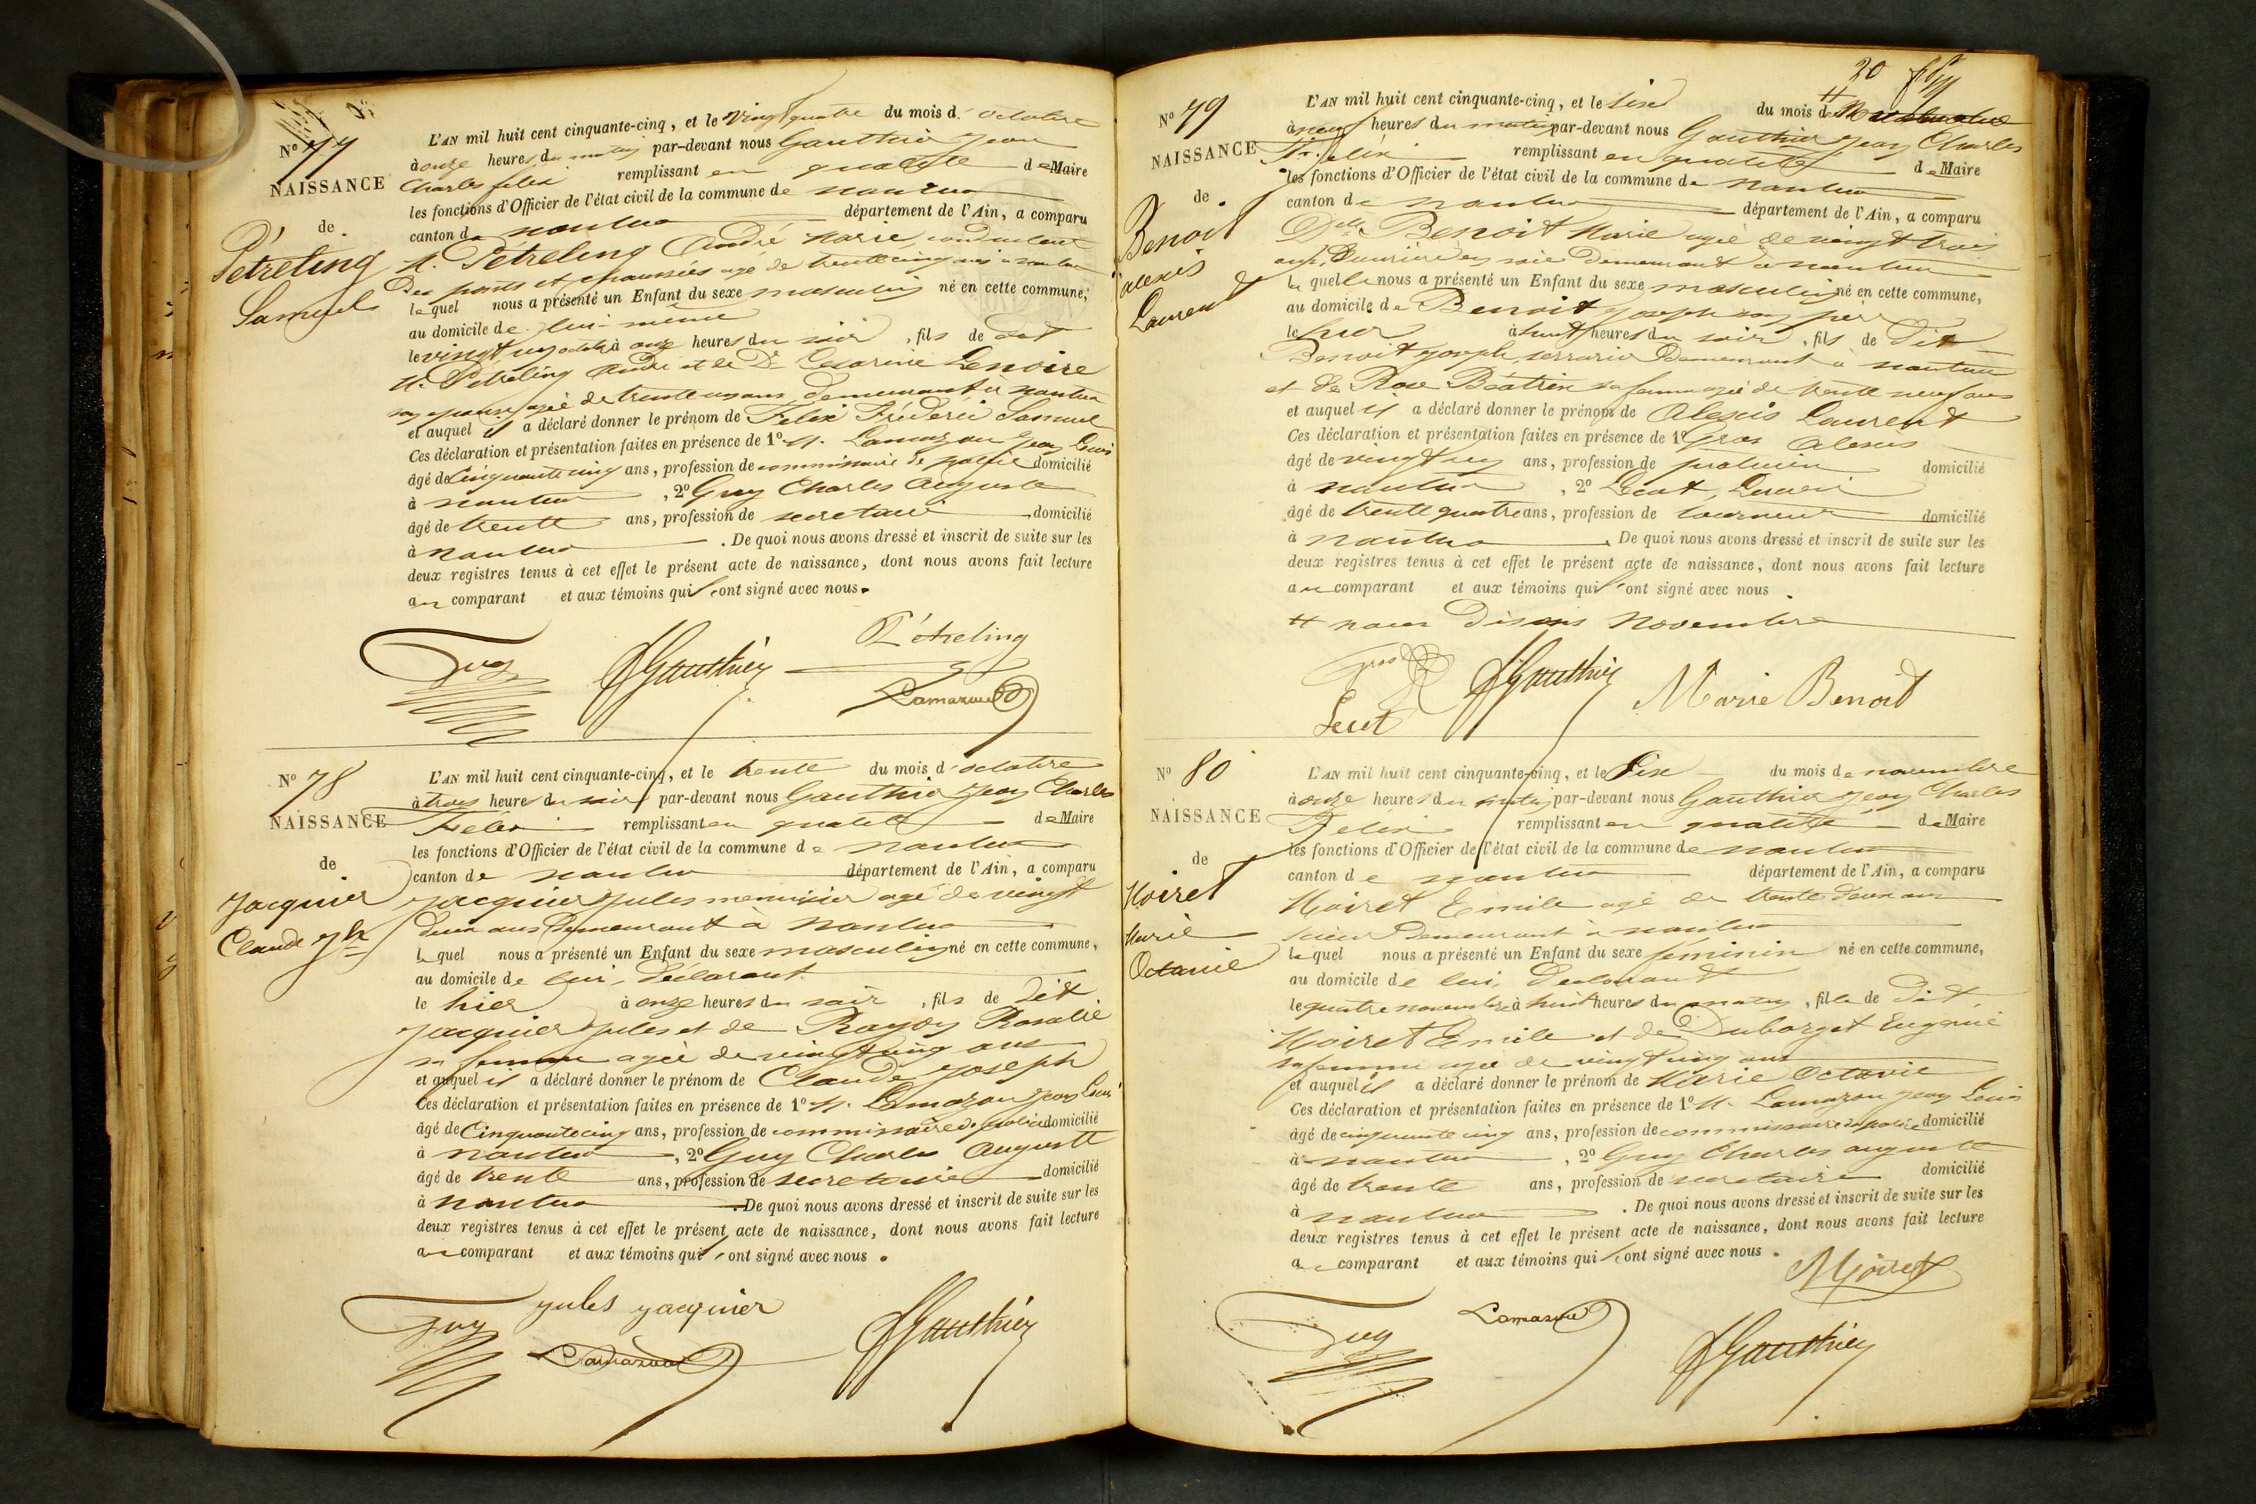 N° 77
NAISSANCE
de
Pétreling
Samuel
L'AN mil huit cent cinquante-cinq, et le vingt quatre du mois d'octobre
à onze heures du matin par-devant nous Gauthier Jean
Charles felix remplissant en qualité de Maire
les fonctions d'Officier de l'état civil de la commune de nantua
canton de nantua département de l'Ain, a comparu
M. Pétreling André Marie, conducteur
des ponts et chaussées agé de trente cinq ans à nantua
lequel nous a présenté un Enfant du sexe masculin né en cette commune,
au domicile de lui-même
le vingt un octobre à onze heures du soir, fils de dit
M. Pétreling André et de De Cesarine Lenoire
son epouse agée de trente un ans, demeurant à nantua
et auquel il a déclaré donner le prénom de Felix Frederic Samuel
Ces déclaration et présentation faites en présence de 1° M. Lamazou Jean Louis
âgé de Cinquante cinq ans, profession de commissaire de police domicilié
à nantua, 2° Guy Charles Auguste
âgé de trente ans, profession de secretaire domicilié
à nantua. De quoi nous avons dressé et inscrit de suite sur les
deux registres tenus à cet effet le présent acte de naissance, dont nous avons fait lecture
au comparant et aux témoins qui ont signé avec nous.
Pétreling
Guy Gauthier
Lamazou
N° 78
NAISSANCE
de
Jacquier
Claude Jh
L'AN mil huit cent cinquante-cinq, et le trente du mois d'octobre
à trois heures du soir par-devant nous Gauthier Jean Charles
Félix remplissant en qualité de Maire
les fonctions d'Officier de l'état civil de la commune de nantua
canton de nantua département de l'Ain, a comparu
Jacquier Jules menuisier agé de vingt
deux ans demeurant à Nantua
lequel nous a présenté un Enfant du sexe masculin né en cette commune,
au domicile de lui, déclarant
le hier à onze heures du soir, fils de dit
Jacquier Jules et de Rosalie
sa femme agée de vingt cinq ans
et auquel il a déclaré donner le prénom de Claude Joseph
Ces déclaration et présentation faites en présence de 1° M. Lamazou Jean Louis
âgé de Cinquante cinq ans, profession de commissaire de police domicilié
à nantua, 2° Guy Charles Auguste
âgé de trente ans, profession de secretaire domicilié
à nantua. De quoi nous avons dressé et inscrit de suite sur les
deux registres tenus à cet effet le présent acte de naissance, dont nous avons fait lecture
au comparant et aux témoins qui ont signé avec nous.
Jules Jacquier
Guy Lamazou Gauthier
20
N° 79
NAISSANCE
de
Benoit
alexis
Laurent
L'AN mil huit cent cinquante-cinq, et le six du mois de
à neuf heures du matin par-devant nous Gauthier Jean Charles
Félix remplissant en qualité de Maire
les fonctions d'Officier de l'état civil de la commune de Nantua
canton de nantua département de l'Ain, a comparu
Dlle Benoit Marie agée de vingt trois
ans, Ouvrière en soie demeurant à nantua
laquelle nous a présenté un Enfant du sexe masculin né en cette commune,
au domicile de Benoit Joseph son père
le hier à huit heures du soir, fils de dit
Benoit Joseph, serrurier demeurant à nantua
et de Rose Béatrix sa femme agée de trente neuf ans
et auquel il a déclaré donner le prénom de Alexis Laurent
Ces déclaration et présentation faites en présence de 1° Gros Alexis
âgé de vingt ans, profession de domicilié
à nantua, 2°
âgé de trente quatre ans, profession de tourneur domicilié
à nantua. De quoi nous avons dressé et inscrit de suite sur les
deux registres tenus à cet effet le présent acte de naissance, dont nous avons fait lecture
au comparant et aux témoins qui ont signé avec nous.
# nous disons Novembre
Gros Gauthier Marie Benoit
N° 80
NAISSANCE
de
Moiret
Marie
Octavie
L'AN mil huit cent cinquante-cinq, et le Six du mois de novembre
à onze heures du matin par-devant nous Gauthier Jean Charles
Félix remplissant en qualité de Maire
les fonctions d'Officier de l'état civil de la commune de nantua
canton de nantua département de l'Ain, a comparu
Moiret Emile agé de trente deux ans
scieur demeurant à nantua
lequel nous a présenté un Enfant du sexe féminin né en cette commune,
au domicile de lui, Déclarant
le quatre novembre à huit heures du matin, fille de dit
Moiret Emile et de Duborget Eugénie
sa femme agée de vingt cinq ans
et auquel il a déclaré donner le prénom de Marie Octavie
Ces déclaration et présentation faites en présence de 1° M. Lamazou Jean Louis
âgé de cinquante cinq ans, profession de commissaire de police domicilié
à nantua, 2° Guy Charles auguste
âgé de trente ans, profession de secretaire domicilié
à nantua. De quoi nous avons dressé et inscrit de suite sur les
deux registres tenus à cet effet le présent acte de naissance, dont nous avons fait lecture
au comparant et aux témoins qui ont signé avec nous.
Moiret
Guy Lamazou Gauthier